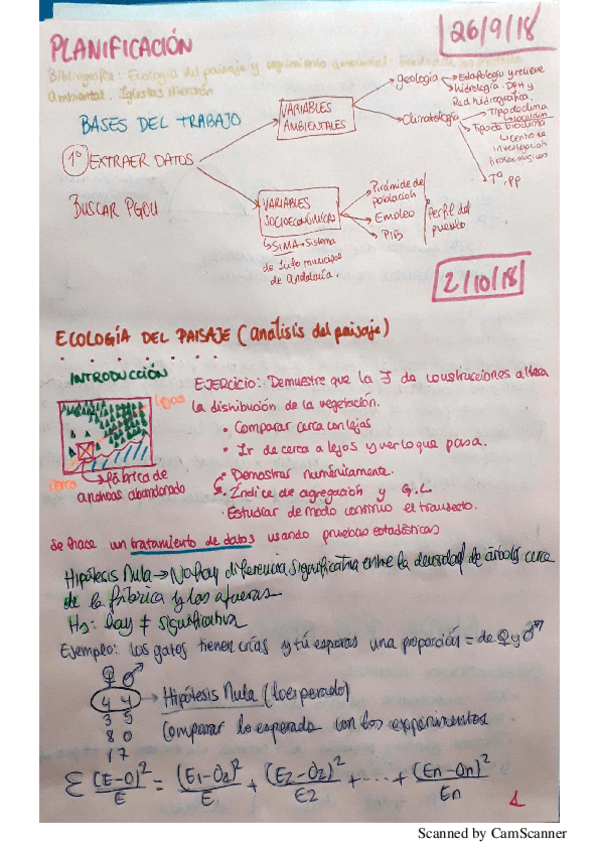 26/9/18
PLANIFICACIÓN
Bibliografía: Ecología del paisaje y seguimiento ambiental:
ambiental. Iglesias Merchán
BASES DEL TRABAJO
1º EXTRAER DATOS
BUSCAR PGOU
VARIABLES
AMBIENTALES
Geología
Edafología y relieve
hidrología. DPH y
Red hidrográfica.
Climatología
Tipo de clima
Tipo de bioclima
Centro de
investigación
Tº, PP
VARIABLES
SOCIOECONÓMICAS
SIMA → Sistema
de Info municipios
de Andalucía.
Pirámide de
población
Empleo
PIB
Perfil del
pueblo
2/10/18
ECOLOGÍA DEL PAISAJE (análisis del paisaje)
INTRODUCCIÓN
lejos
cerca
fábrica de
anchoas abandonado
EJERCICIO: Demuestre que la J de construcciones altera
la distribución de la vegetación.
• Comparar cerca con lejos
• Ir de cerca a lejos y ver lo que pasa.
• Demostrar numéricamente.
Índice de agregación y G.L.
• Estudiar de modo continuo el transecto.
Se hace un tratamiento de datos usando pruebas estadísticas
Hipótesis Nula → No hay diferencia significativa entre la densidad de árboles cerca
de la fábrica y las afueras
H1: hay ≠ significativa
Ejemplo: los gatos tienen crías y tú esperas una proporción = de ♀ y ♂
♀ ♂
4 4 → Hipótesis Nula (lo esperado)
3 5
Comparar lo esperado con los experimentos
8 0
1 7
Σ (E-O)²/E = (E1-O1)²/E + (E2-O2)²/E2 + ... + (En-On)²/En
1
Scanned by CamScanner